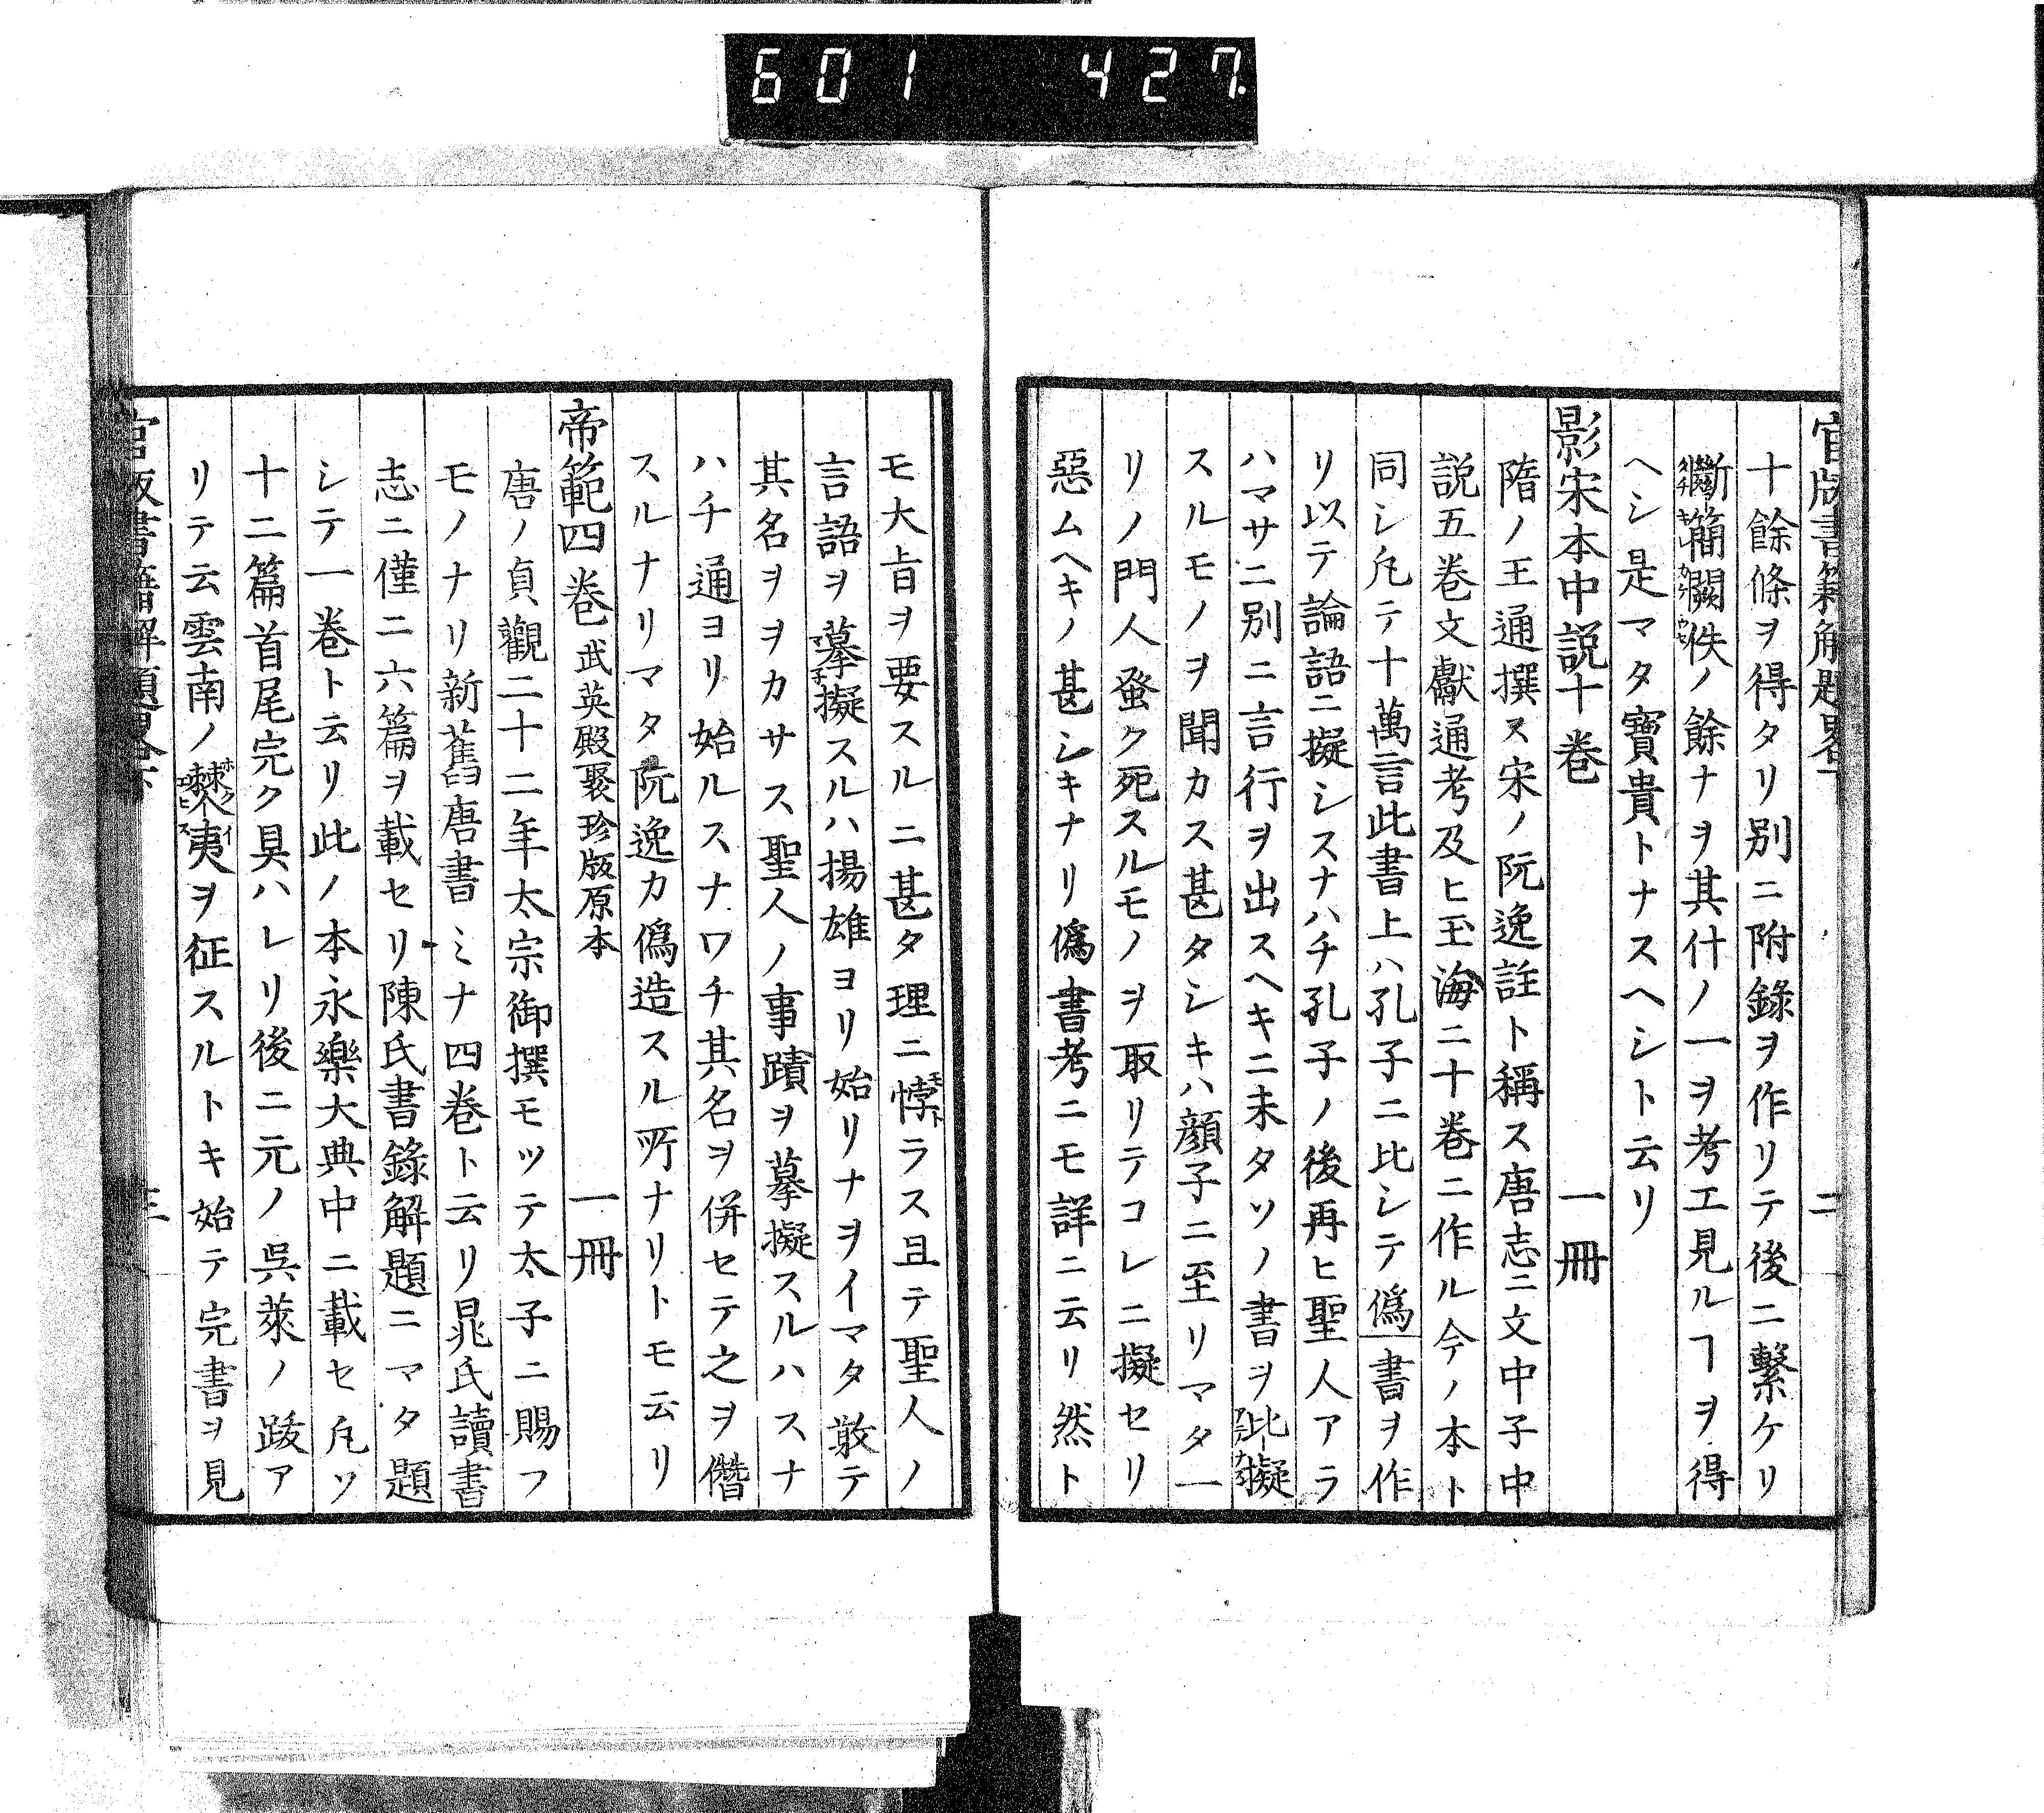 601 427.
官版書籍解題畧下 二
十餘條ヲ得タリ別ニ附錄ヲ作リテ後ニ繫ケリ
斷簡闕佚ノ餘ナヲ其什ノ一ヲ考エ見ルヿヲ得
ヘシ是マタ寶貴トナスヘシト云リ
影宋本中説十卷 一冊
隋ノ王通撰ス宋ノ阮逸註ト稱ス唐志ニ文中子中
説五巻文獻通考及ヒ玉海ニ十巻ニ作ル今ノ本ト
同シ凡テ十萬言此書上ハ孔子ニ比シテ僞書ヲ作
リ以テ論語ニ擬シスナハチ孔子ノ後再ヒ聖人アラ
ハマサニ別ニ言行ヲ出スヘキニ未タソノ書ヲ比擬
スルモノヲ聞カス甚タシキハ顔子ニ至リマタ一
リノ門人蚤ク死スルモノヲ取リテコレニ擬セリ
惡ムヘキノ甚シキナリ僞書考ニモ詳ニ云リ然ト
モ大旨ヲ要スルニ甚タ理ニ悖ラス且テ聖人ノ
言語ヲ摹擬スルハ揚雄ヨリ始リナヲイマタ敢テ
其名ヲヲカサス聖人ノ事蹟ヲ摹擬スルハスナ
ハチ通ヨリ始ルスナワチ其名ヲ併セテ之ヲ僭
スルナリマタ阮逸カ僞造スル所ナリトモ云リ
帝範四卷 武英殿聚珍版原本 一冊
唐ノ貞觀二十二年太宗御撰モツテ太子ニ賜フ
モノナリ新舊唐書ミナ四巻ト云リ晁氏讀書
志ニ僅ニ六篇ヲ載セリ陳氏書錄解題ニマタ題
シテ一巻ト云リ此ノ本永樂大典中ニ載セ凡ソ
十二篇首尾完ク具ハレリ後ニ元ノ吳萊ノ跋ア
リテ云雲南ノ僰夷ヲ征スルトキ始テ完書ヲ見
官版書籍解題畧下 三